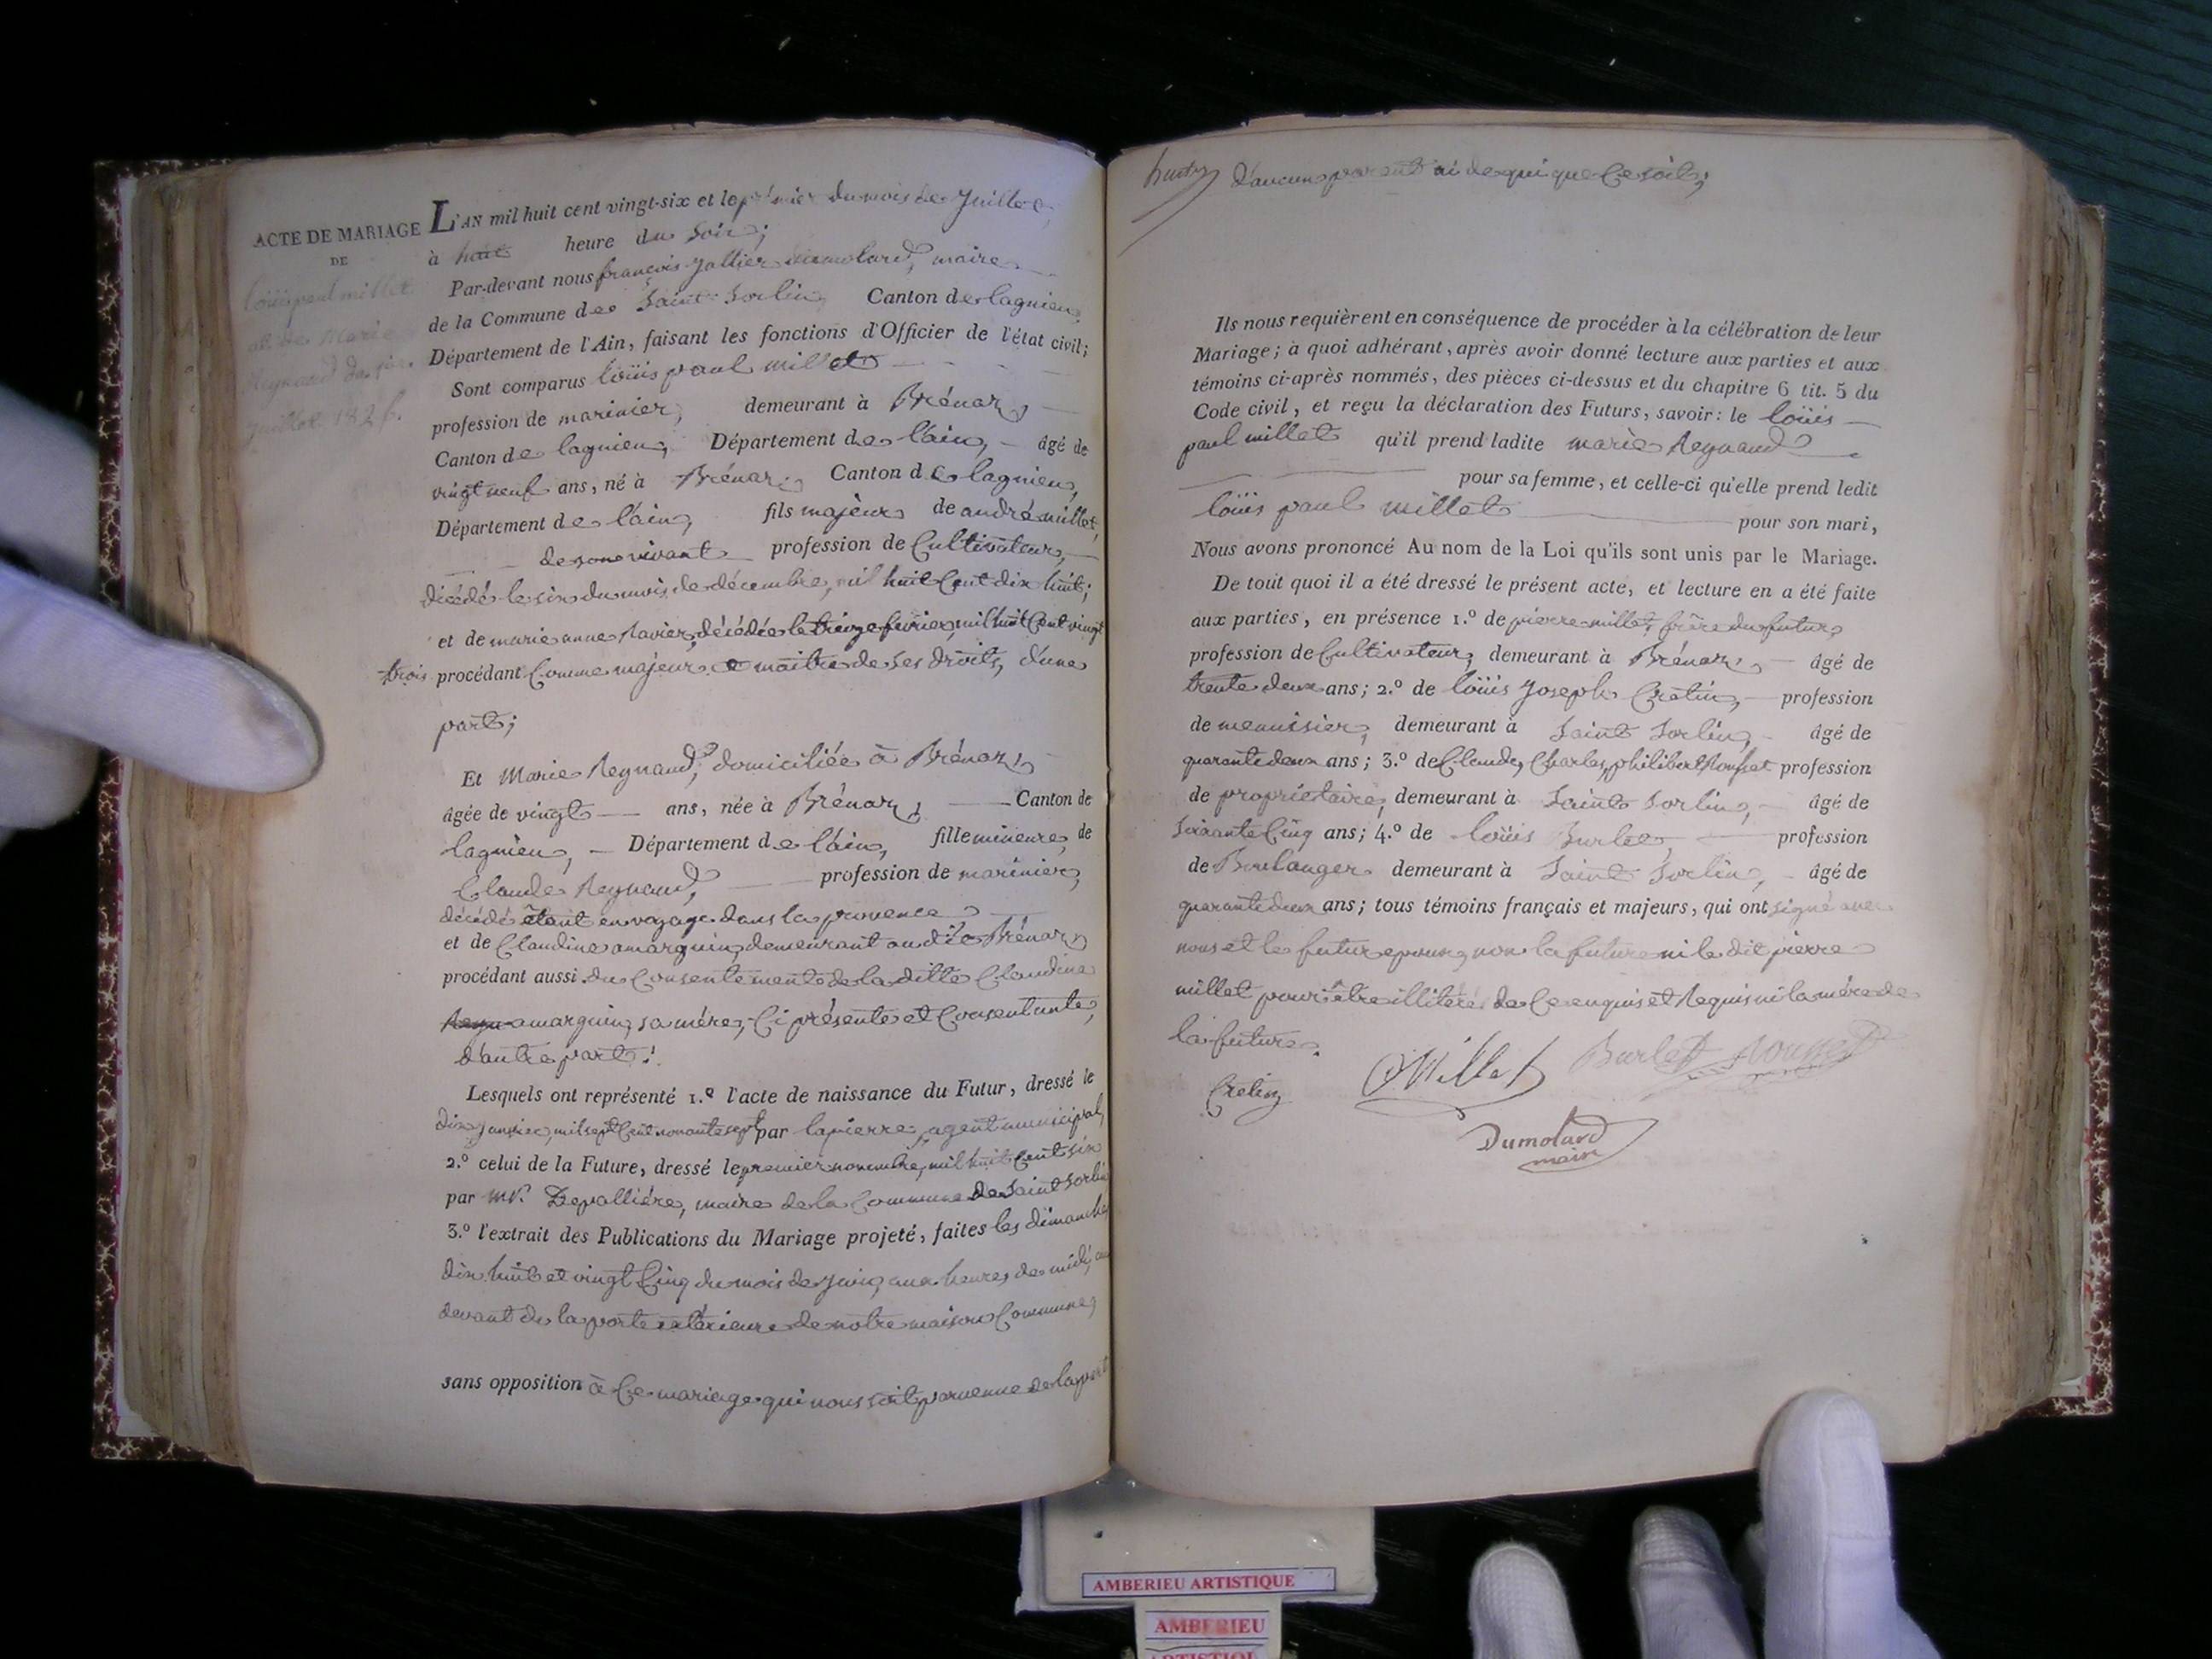 ACTE DE MARIAGE
DE
loüis paul millet
et de Marie
Reynaud du pr.
juillet 1826.
L'AN mil huit cent vingt-six et le premier du mois de Juillet,
à huit heure du soir;
Par-devant nous françois Jallier Dumolard, maire
de la Commune de Saint-Sorlin, Canton de lagnieu,
Département de l'Ain, faisant les fonctions d'Officier de l'état civil;
Sont comparus loüis paul millet
profession de marinier, demeurant à Brénaz,
Canton de lagnieu, Département de l'ain, âgé de
vingt neuf ans, né à Brénaz, Canton de lagnieu,
Département de l'ain, fils majeur de andré millet,
de son vivant profession de Cultivateur,
décédé le six du mois de décembre, mil huit Cent dix huit;
et de marie anne Ravier, décédée le treize février, mil huit Cent vingt
trois procédant Comme majeur et maitre de ses droits, d'une
part;
Et Marie Reynaud, domiciliée à Brénaz,
âgée de vingt ans, née à Brénaz, Canton de
lagnieu, Département de l'ain, fille mineure, de
Claude Reynaud, profession de marinier,
décédé étant en voyage dans la provence
et de Claudine amarguin, demeurant au dit Brénaz,
procédant aussi du Consentement de la ditte Claudine
Reyn amarguin, sa mére, Ci présente et Consentante,
d'autre part.
Lesquels ont représenté 1.º l'acte de naissance du Futur, dressé le
dix janvier, mil sept Cent nonante sept par lapierre, agent municipal,
2.º celui de la Future, dressé le premier novembre, mil huit Cent six
par mr. Depalliére, maire de la Commune de Saint Sorlin
3.º l'extrait des Publications du Mariage projeté, faites les dimanches
dix huit et vingt Cinq du mois de juin, aux heures de midi, au
devant de la porte extérieure de notre maison Commune,
sans opposition à Ce mariage qui nous soit parvenue de la part
d'aucun parent ni de qui que Ce soit;
Ils nous requièrent en conséquence de procéder à la célébration de leur
Mariage; à quoi adhérant, après avoir donné lecture aux parties et aux
témoins ci-après nommés, des pièces ci-dessus et du chapitre 6 tit. 5 du
Code civil, et reçu la déclaration des Futurs, savoir: le loüis
paul millet qu'il prend ladite marie Reynaud
pour sa femme, et celle-ci qu'elle prend ledit
loüis paul millet pour son mari,
Nous avons prononcé Au nom de la Loi qu'ils sont unis par le Mariage.
De tout quoi il a été dressé le présent acte, et lecture en a été faite
aux parties, en présence 1.º de pierre millet, frère du futur,
profession de Cultivateur, demeurant à Brénaz, âgé de
trente deux ans; 2.º de loüis Joseph Cretin, profession
de menuisier, demeurant à Saint Sorlin, âgé de
quarante deux ans; 3.º de Claude, Charles, philibert Rousset profession
de propriétaire, demeurant à Saint Sorlin, âgé de
Soixante Cinq ans; 4.º de loüis Burlet, profession
de Boulanger demeurant à Saint Sorlin, âgé de
quarante deux ans; tous témoins français et majeurs, qui ont signé avec
nous et le futur epoux, non la future ni le dit pierre
millet pour être illiteré de Ce enquis et Requis ni la mére de
la future.
Millet Burlet Rousset
Cretin
Dumolard
maire
AMBERIEU ARTISTIQUE
AMBERIEU
ARTISTIQUE